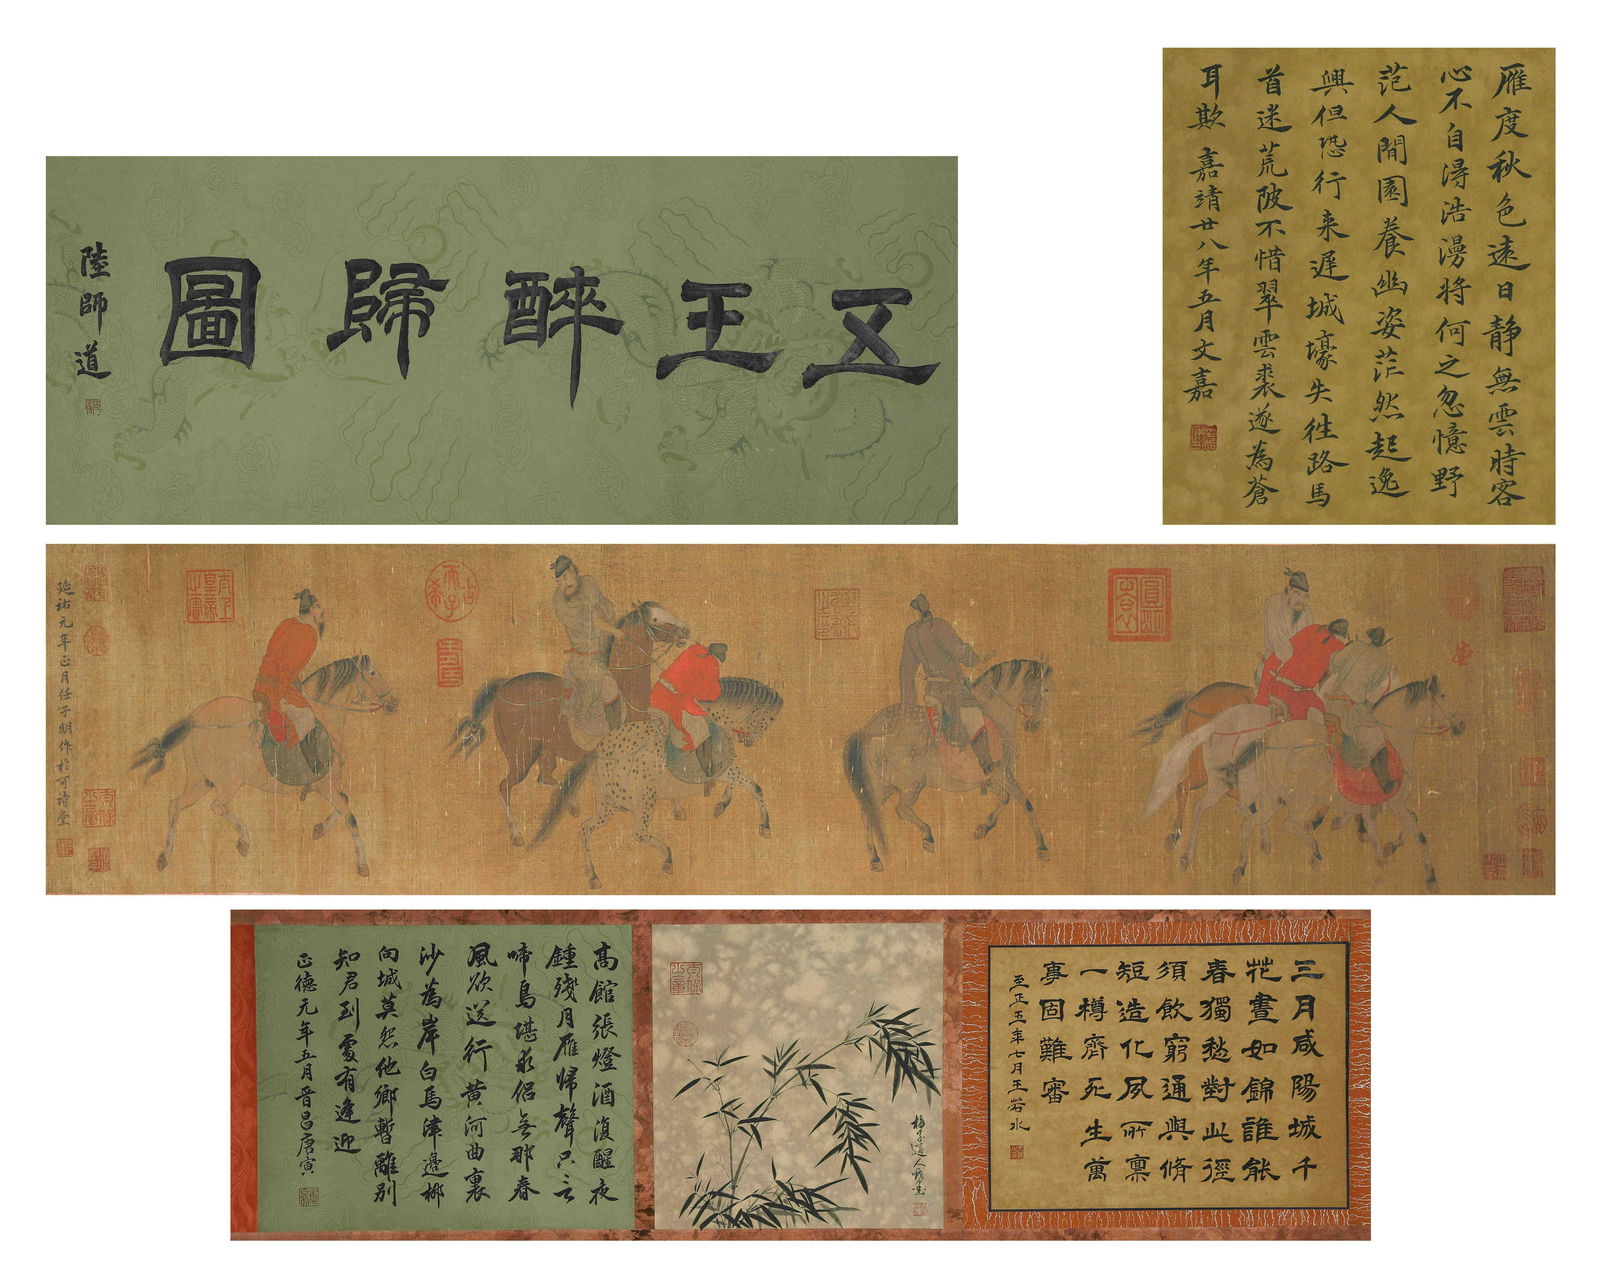 五王醉歸圖
陸師道
雁度秋色遠日靜無雲時客
心不自得浩漫將何之忽憶野
范人間園養幽姿茫然起逸
興但恐行来遲城壕失往路馬
首迷荒陂不惜翠雲裘遂為蒼
耳欺 嘉靖廿八年五月文嘉
延祐元年正月任子明作於可詩堂
三月咸陽城千
花晝如錦誰能
春獨愁對此徑
須飲窮通與脩
短造化夙所禀
一樽齊死生萬
事固難審
至正五年七月王若水
梅花道人戲墨
高館張燈酒復醒夜
鍾殘月雁帰聲只言
啼鳥堪求侣無那春
風欲送行黄河曲裏
沙為岸白馬津邊柳
向城莫怨他鄉暫離別
知君到處有逢迎
正德元年五月晉昌唐寅